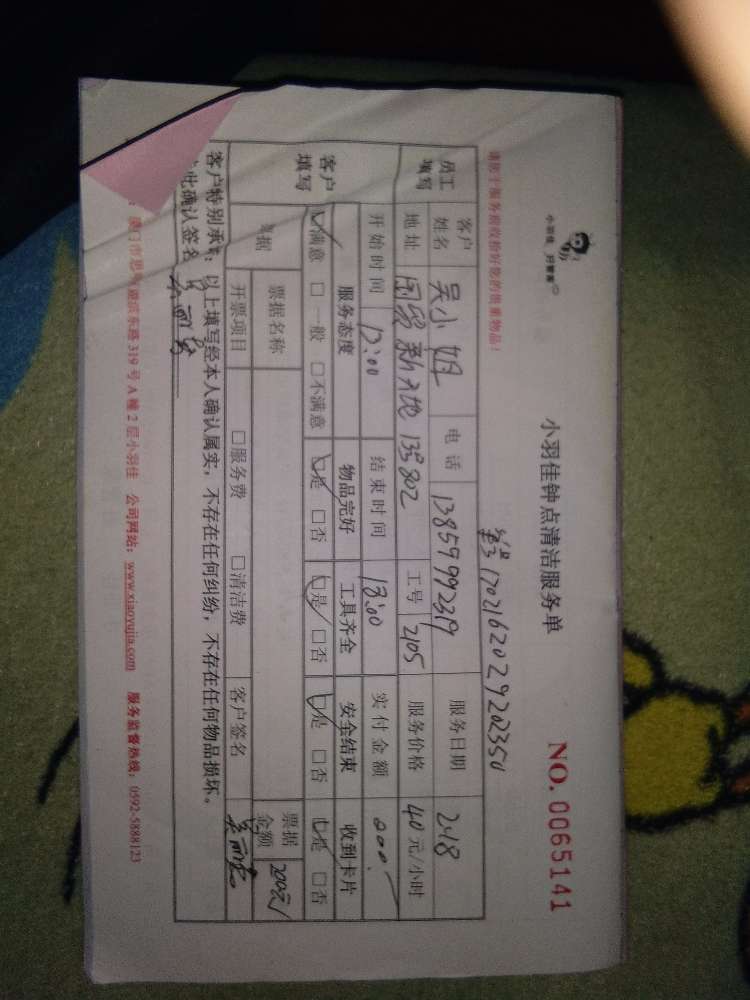 小羽佳 好管家
小羽佳钟点清洁服务单
NO. 0065141
请您于服务前收捡好您的贵重物品！
170216202920235
员工填写
客户姓名 吴小姐 电话 13859992319 服务日期 2.18
地址 国贸新天地 802 工号 2105 服务价格 40元/小时
开始时间 12:00 结束时间 18:00 实付金额
客户填写
服务态度 物品完好 工具齐全 安全结束 收到卡片
☑满意 □一般 □不满意 ☑是 □否 ☑是 □否 ☑是 □否 ☑是 □否
票据名称 票据金额 200元
开票项目 □服务费 □清洁费 客户签名
客户特别承诺：以上填写经本人确认属实，不存在任何纠纷，不存在任何物品损坏。
此确认签名
门市思明区滨东路319号A幢2层小羽佳 公司网站：www.xiaoyujia.com 服务监督热线：0592-5888123